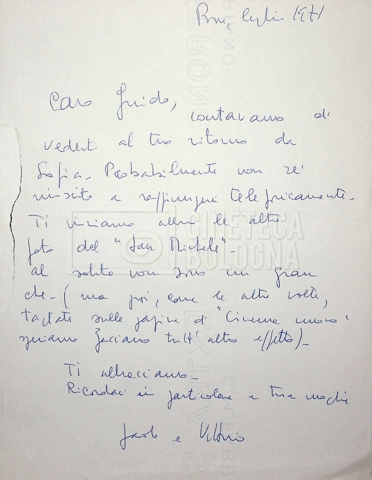 Roma, luglio 1971
Caro Guido, contavamo di
vederti al tuo ritorno da
Sofia. Probabilmente non sei
riuscito a raggiungerci telefonicamente.
Ti inviamo allora le altre
foto del "San Michele"
al solito non sono un gran
che - (ma poi, come le altre volte,
tagliate sulle pagine di "Cinema nuovo"
speriamo facciano tutt'altro effetto) -
Ti abbracciamo -
Ricordaci in particolare a tua moglie
Paolo e Vittorio
CINETECA
BOLOGNA